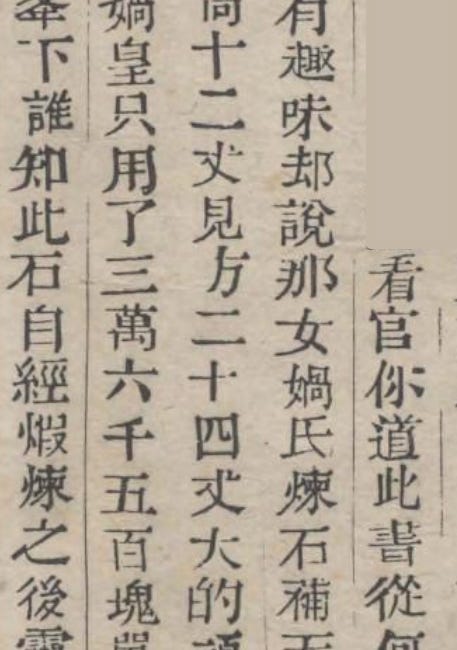 看官你道此書從何
有趣味却說那女媧氏煉石補
十二丈見方二十四丈大的
媧皇只用了三萬六千五百塊
下誰知此石自經煆煉之後靈